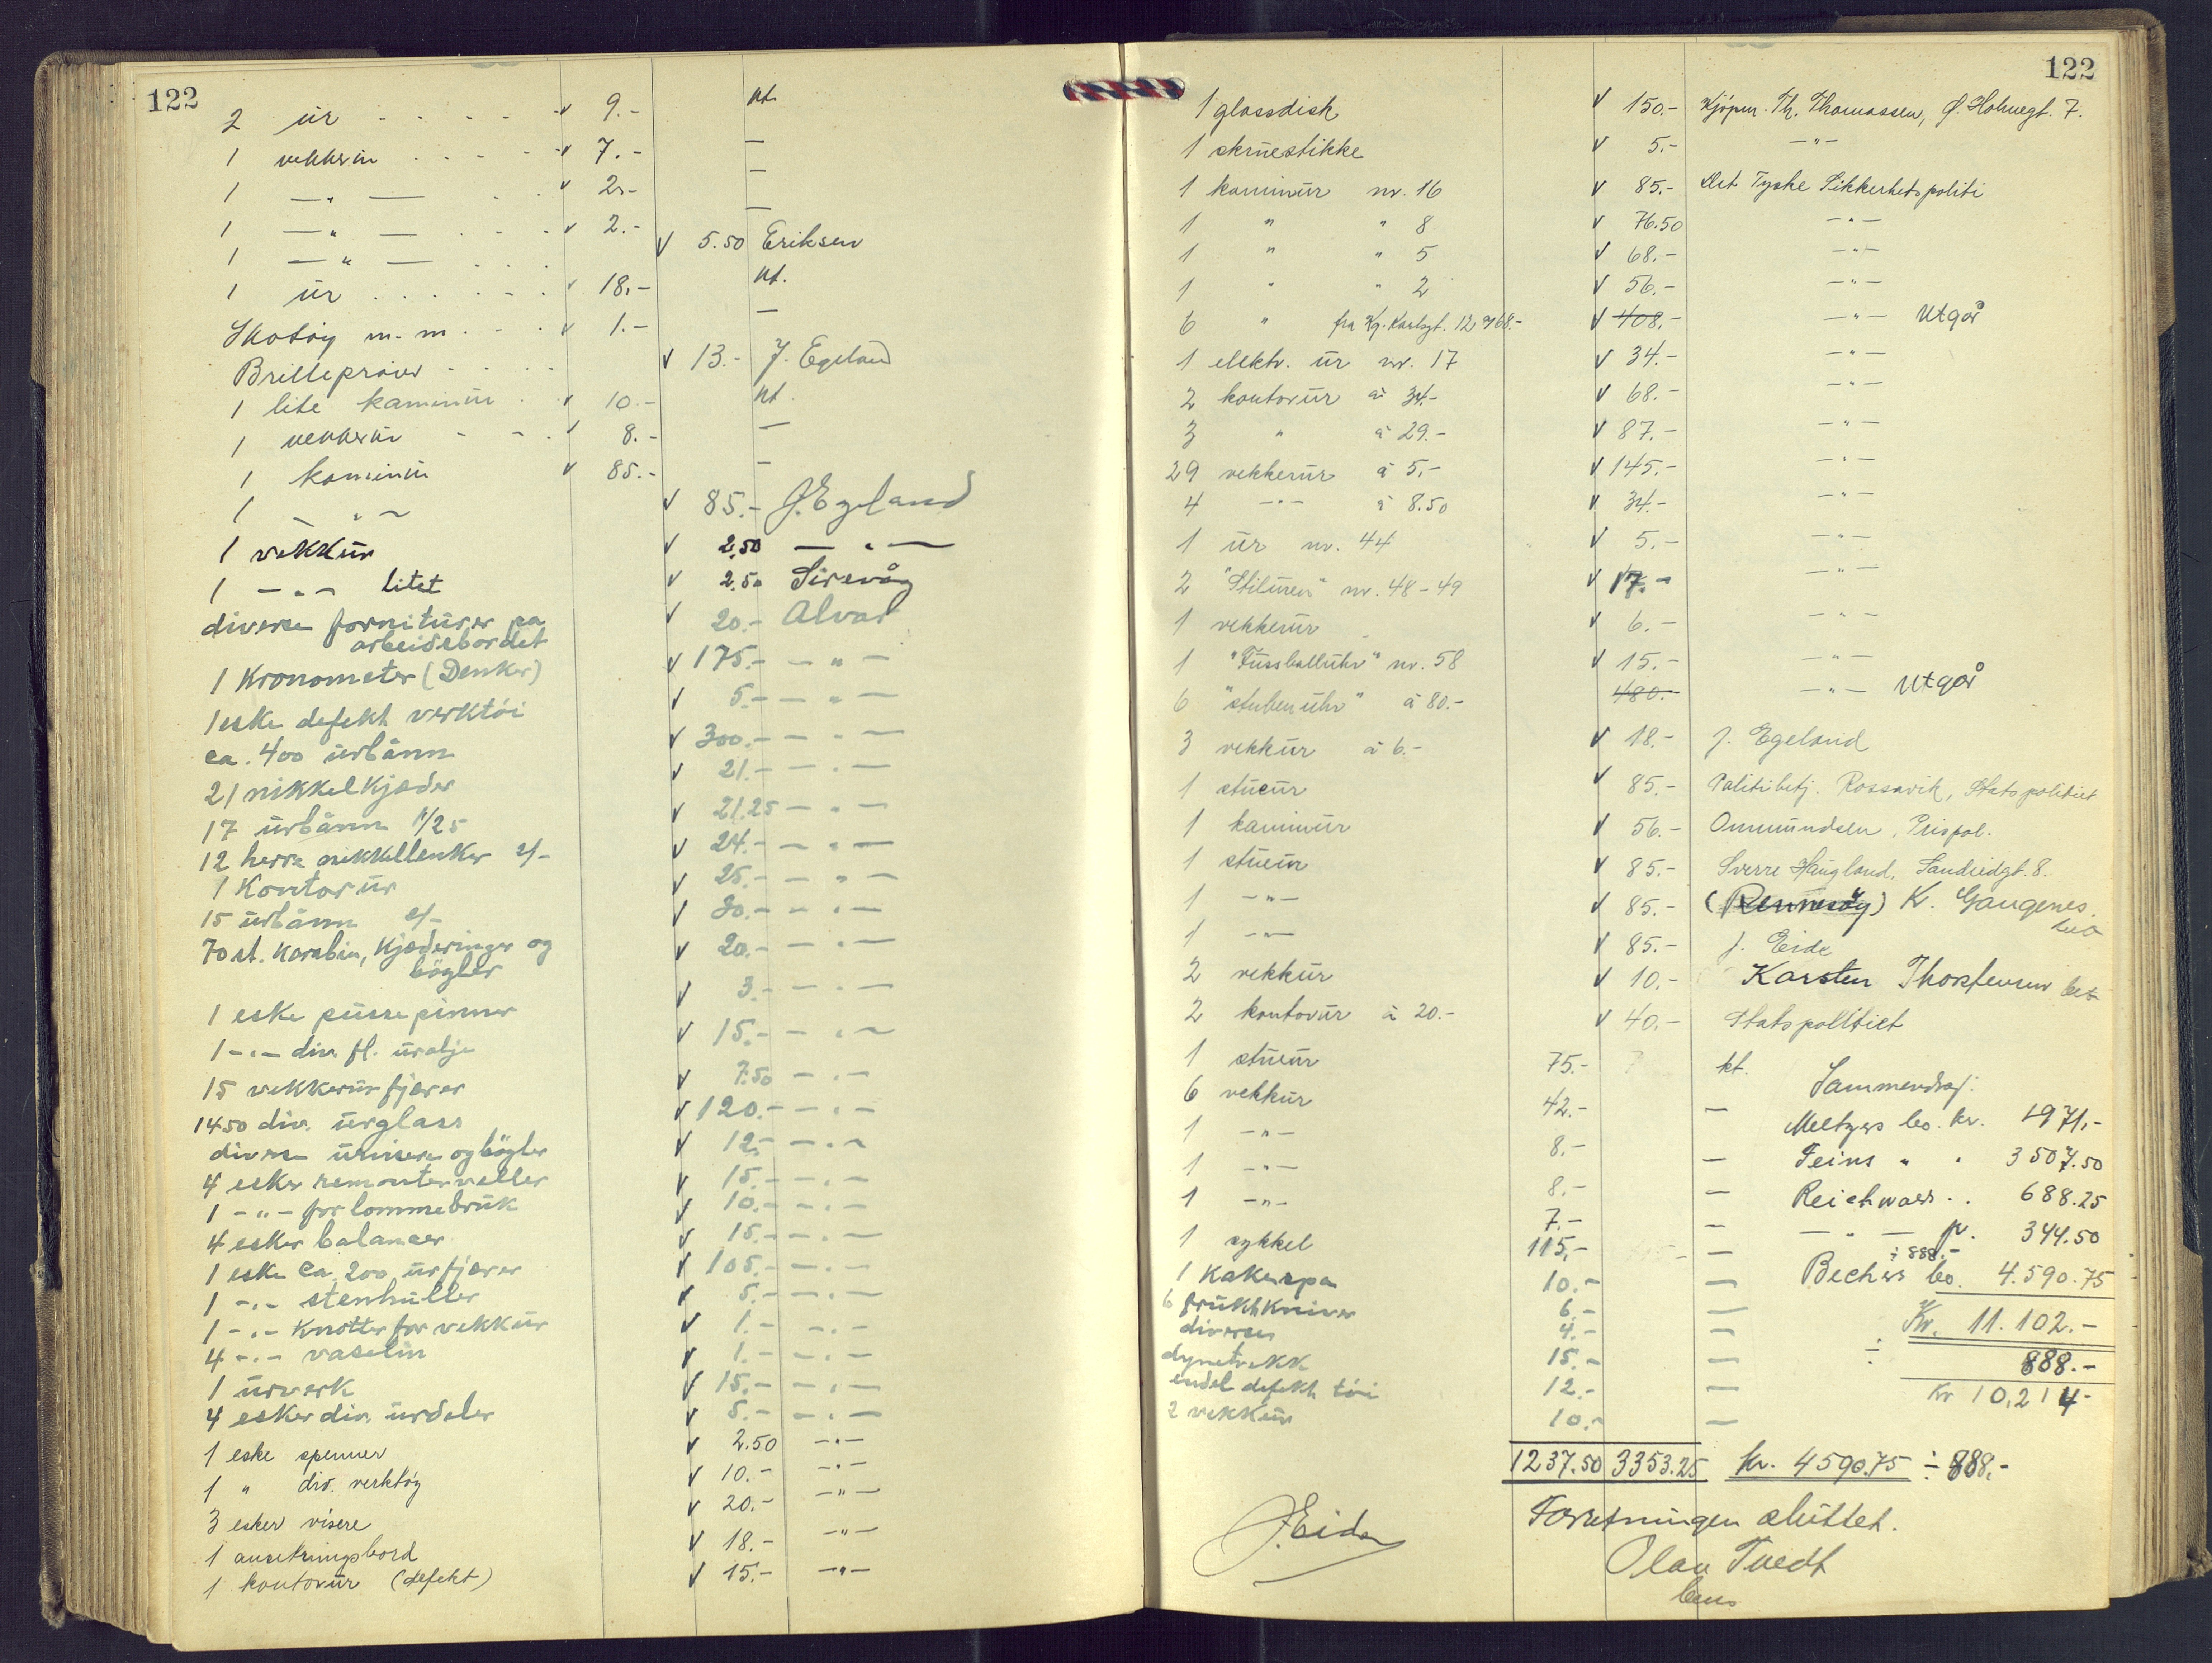 122
2 ur . . . . . v 9.- kt.
1 vekkerur . . . . v 7.- —
1 — " — . . v 2.- —
1 — " — . . . v 2.- —
1 — " — . . . v 5.50 Eriksen
1 ur . . . . . . v 18.- kt.
Skotøy m. m. . . v 1.- —
Brilleprøver . . . . v 13.- J. Egeland
1 lite kaminur . v 10.- kt.
1 vekkerur - - . v 8.- —
1 kaminur v 85.- —
1 — " — v 85.- J. Egeland
1 vekkur v 2.50 — " —
1 — " — litet v 2.50 Sirevåg
diverse forniturer pa
arbeidsbordet v 20.- Alvar
1 Kronometer (Denker) v 175.- — " —
1 eske defekt verktöi v 5.- — " —
ca. 400 urbånn v 300.- — " —
21 nikkelkjæder v 21.- — " —
17 urbånn 1/25 v 21.25 — " —
12 herre nikkellenker 2/- v 24.- — " —
1 Kontor ur v 25.- — " —
15 urbånn 2/- v 30.- — " —
70 st. Karabin, Kjæderinger og
bögler v 20.- — " —
1 eske pussepinner v 3.- — " —
1 - " - div. fl. urolje v 15.- — " —
15 vekkerurfjærer v 7.50 — " —
1450 div. urglass v 120.- — " —
diverse urvisere og bögler v 12.- — " —
4 esker remonterveller v 15.- — " —
1 - " - for lommebruk v 10.- — " —
4 esker balanser v 15.- — " —
1 eske ca. 200 urfjærer v 105.- — " —
1 - " - stenhuller v 5.- — " —
1 - " - Knotter for vekkur v 1.- — " —
4 - " - vaselin v 1.- — " —
1 urverk v 15.- — " —
4 esker div. urdeler v 5.- — " —
1 eske spenner v 2.50 — " —
1 " div. verktøy v 10.- — " —
3 esker visere v 20.- — " —
1 ansetningsbord v 18.- — " —
1 kontorur (defekt) v 15.- — " —
122
1 glassdisk v 150.- Kjøpm. Th. Thomassen, Ø. Holmegt. 7.
1 skruestikke v 5.- — " —
1 kaminur nr. 16 v 85.- Det Tyske Sikkerhetspoliti
1 " " 8 v 76.50 — " —
1 " " 5 v 68.- — " —
1 " " 2 v 56.- — " —
6 " fra Kg. Karlsgt. 12 a 68.- v 408.- — " — Utgår
1 elektr. ur nr. 17 v 34.- — " —
2 kontorur à 34.- v 68.- — " —
3 " à 29.- v 87.- — " —
29 vekkerur à 5.- v 145.- — " —
4 — " — à 8.50 v 34.- — " —
1 ur nr. 44 v 5.- — " —
2 "Stiluren" nr. 48-49 v 17.- — " —
1 vekkerur v 6.- — " —
1 "Fussballuhr" nr. 58 v 15.- — " —
6 "stubenuhr" à 80.- 480.- — " — Utgår
3 vekkur à 6.- v 18.- J. Egeland
1 stueur v 85.- Politibetj. Rossavik, Statspolitiet
1 kaminur v 56.- Ommundsen, Prispol.
1 stueur v 85.- Sverre Haugland, Sandeidgt. 8.
1 — " — v 85.- (Rennesøy) K. Gaugenes.
1 — " — v 85.- J. Eide
2 vekkur v 10.- Karsten Thorstensen bet
2 kontorur à 20.- v 40.- Statspolitiet
1 stueur 75.- kt. Sammendrag:
6 vekkur 42.- — Meltzers bo. kr. 1971.-
1 — " — 8.- — Feins " " 3507.50
1 — " — 8.- — Reichwaers . . 688.25
1 — " — 7.- — — " — fr. 344.50
1 sykkel 115.- — ÷ 888.-
1 Kakespa 10.- — Bechers bo. 4.590.75
6 fruktkniver 6.- — Kr. 11.102.-
diverse 4.- — ÷ 888.-
dynetrekk 15.- — Kr 10,214-
endel defekt töi 12.- —
2 vekkur 10.- —
1237.50 3353.25 kr. 4590.75 ÷ 888.-
Forretningen sluttet.
J. Eide
Olav Tvedt